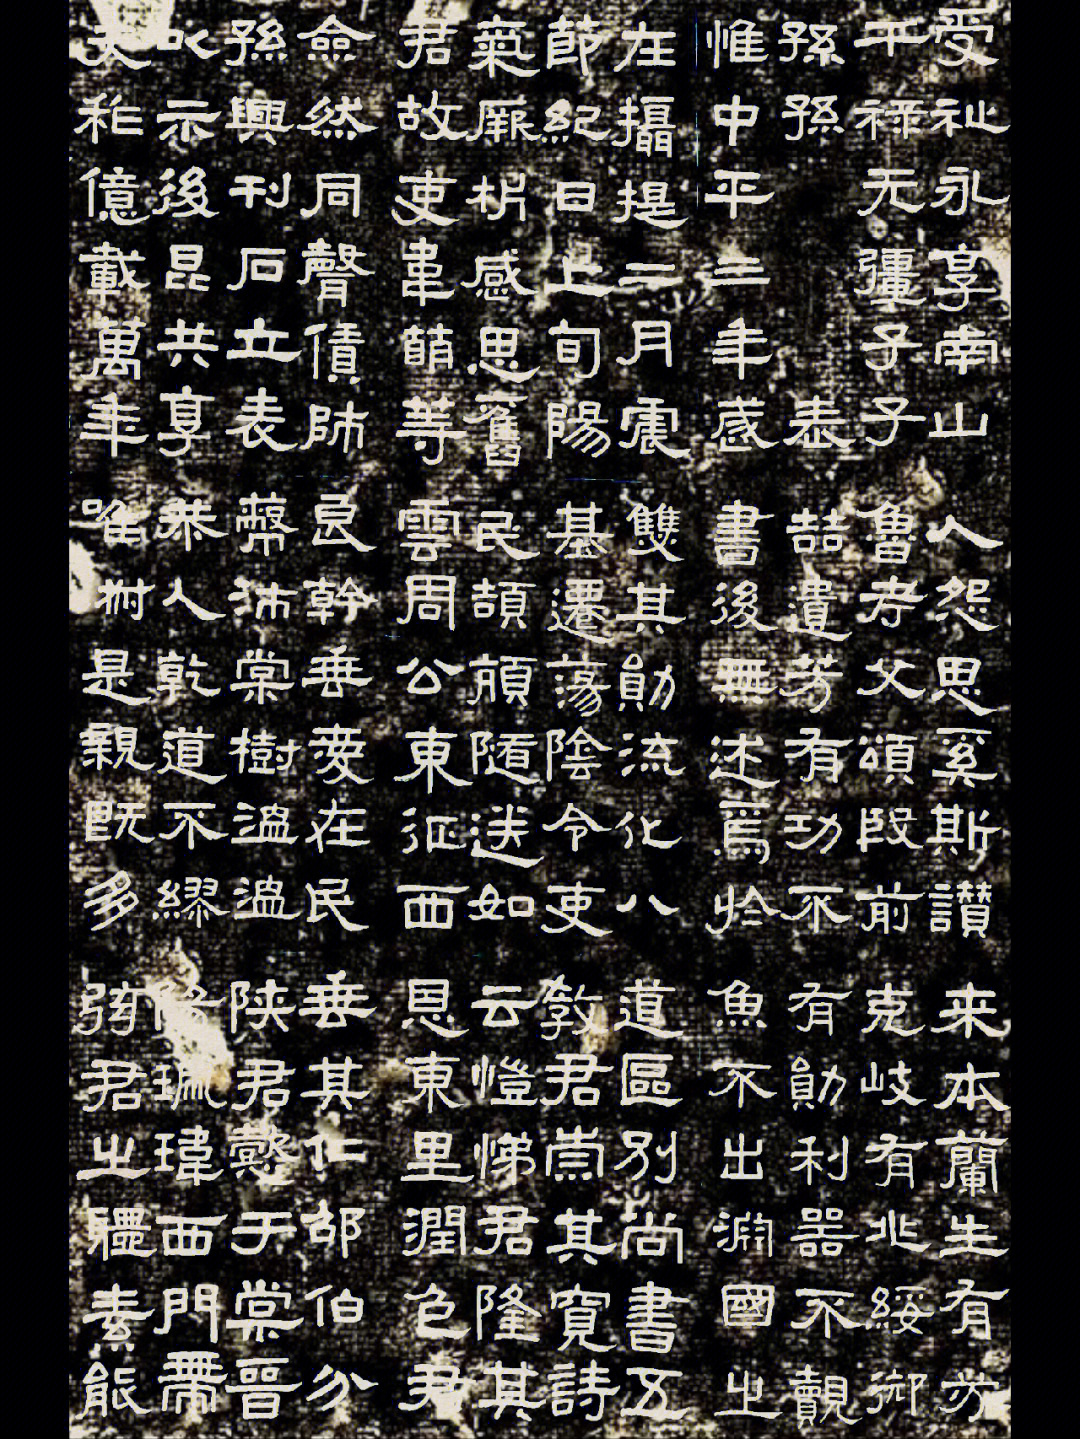 受祉永享南山
干祿无疆子子
孫孫 表
惟中平三年歲
在攝提二月震
節紀日上旬陽
氣厥析感思舊
君故吏韋萌等
僉然同聲賃師
孫興刊石立表
以示後昆共享
天秩億載萬年
人怨思奚斯讚
魯考父頌殷前
喆遺芳有功不
書後無述焉於
雙其勛流化八
基遷蕩陰令吏
民頡頏隨送如
雲周公東征西
良幹垂愛在民
蔽沛棠樹溫溫
恭人乾道不繆
唯淑是親既多
来本蘭生有芬
克岐有兆綏御
有勛利器不覿
魚不出淵國之
道區別尚書五
教君崇其寬詩
云愷悌君隆其
恩東里潤色君
垂其仁邵伯分
陝君懿于棠晉
陽珮瑋西門帶
弦君之體素能